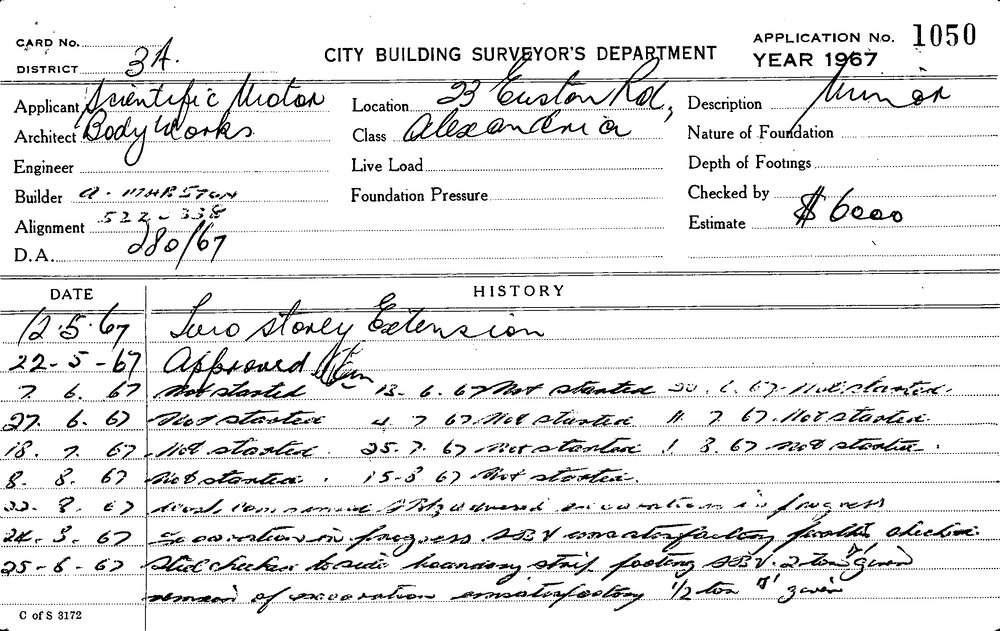 CARD No.
DISTRICT 3A.
CITY BUILDING SURVEYOR'S DEPARTMENT
APPLICATION No. 1050
YEAR 1967
Applicant Scientific Motor
Architect Body Works
Engineer
Builder A. MARSTON
Alignment 522-338
D.A. 280/67
Location 23 Euston Rd,
Class Alexandria
Live Load
Foundation Pressure
Description Minor
Nature of Foundation
Depth of Footings
Checked by
Estimate $6000
DATE HISTORY
12.5.67 Two storey Extension
22-5-67 Approved
7. 6. 67 Not started 13. 6. 67 Not started 20. 6. 67. Not started.
27. 6. 67 Not started 4. 7. 67. Not started 11. 7. 67. Not started.
18. 7. 67 Not started. 25. 7. 67 Not started 1. 8. 67 Not started.
8. 8. 67 Not started. 15-8 67 Not started.
22. 8. 67 work commenced advised excavation in progress
24. 8. 67 Excavation in progress unsatisfactory
25-8-67 Steel checked to side boundary strip footing 2 ton given
remain of excavation unsatisfactory 1/2 ton given
C of S 3172